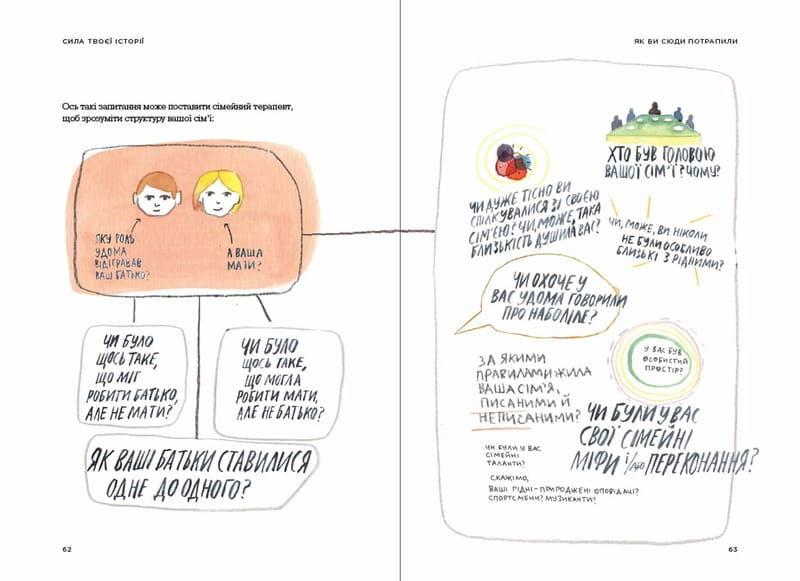 СИЛА ТВОЄЇ ІСТОРІЇ
Ось такі запитання може поставити сімейний терапевт,
щоб зрозуміти структуру вашої сім’ї:
ЯКУ РОЛЬ
УДОМА
ВІДІГРАВАВ
ВАШ БАТЬКО?
А ВАША
МАТИ?
ЧИ БУЛО
ЩОСЬ ТАКЕ,
ЩО МІГ
РОБИТИ БАТЬКО,
АЛЕ НЕ МАТИ?
ЧИ БУЛО
ЩОСЬ ТАКЕ,
ЩО МОГЛА
РОБИТИ МАТИ,
АЛЕ НЕ БАТЬКО?
ЯК ВАШІ БАТЬКИ СТАВИЛИСЯ
ОДНЕ ДО ОДНОГО?
62
ЯК ВИ СЮДИ ПОТРАПИЛИ
ХТО БУВ ГОЛОВОЮ
ВАШОЇ СІМ’Ї? ЧОМУ?
ЧИ ДУЖЕ ТІСНО ВИ
СПІЛКУВАЛИСЯ ЗІ СВОЄЮ
СІМ’ЄЮ? ЧИ, МОЖЕ, ТАКА
БЛИЗЬКІСТЬ ДУШИЛА ВАС?
ЧИ, МОЖЕ, ВИ НІКОЛИ
НЕ БУЛИ ОСОБЛИВО
БЛИЗЬКІ З РІДНИМИ?
ЧИ ОХОЧЕ У
ВАС УДОМА ГОВОРИЛИ
ПРО НАБОЛІЛЕ?
У ВАС БУВ
ОСОБИСТИЙ
ПРОСТІР?
ЗА ЯКИМИ
ПРАВИЛАМИ ЖИЛА
ВАША СІМ’Я,
ПИСАНИМИ Й
НЕПИСАНИМИ?
ЧИ БУЛИ У ВАС
СВОЇ СІМЕЙНІ
МІФИ І/АБО ПЕРЕКОНАННЯ?
ЧИ БУЛИ У ВАС
СІМЕЙНІ
ТАЛАНТИ?
СКАЖІМО,
ВАШІ РІДНІ – ПРИРОДЖЕНІ ОПОВІДАЧІ?
СПОРТСМЕНИ? МУЗИКАНТИ?
63